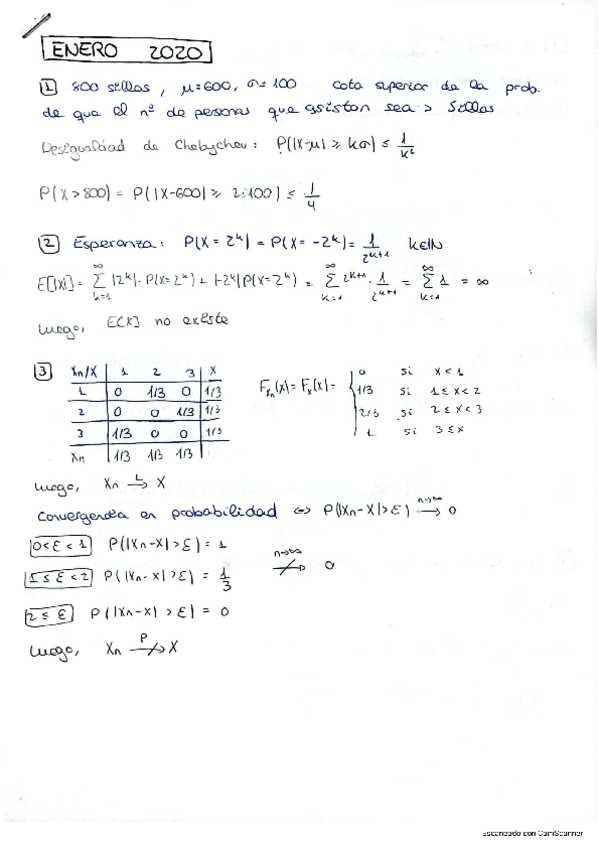 ENERO 2020
1 800 sillas, μ=600, σ=100 Cota superior de la prob.
de que el nº de personas que asistan sea > Sillas
Desigualdad de Chebychev: P(|X-μ| ≥ kσ) ≤ 1/k²
P(X>800) = P(|X-600| ≥ 2·100) ≤ 1/4
2 Esperanza: P(X=2^k) = P(X=-2^k) = 1/2^(k+1) k∈ℕ
E[|X|] = ∑_{k=1}^∞ |2^k|·P(X=2^k) + |-2^k| P(X=2^k) = ∑_{k=1}^∞ 2^(k+1) · 1/2^(k+1) = ∑_{k=1}^∞ 1 = ∞
Luego, E[X] no existe
3 Xn/X 1 2 3 X
1 0 1/3 0 1/3
2 0 0 1/3 1/3
3 1/3 0 0 1/3
Xn 1/3 1/3 1/3
F_Xn(x) = F_X(x) =
0 si x < 1
1/3 si 1 ≤ x < 2
2/3 si 2 ≤ x < 3
1 si 3 ≤ x
Luego, Xn →^L X
Convergencia en probabilidad ⇔ P(|Xn-X|>ε) →^{n→∞} 0
0<ε<1 P(|Xn-X|>ε) = 1
1≤ε<2 P(|Xn-X|>ε) = 1/3 ↛^{n→∞} 0
2≤ε P(|Xn-X|>ε) = 0
Luego, Xn ↛^P X
Escaneado con CamScanner